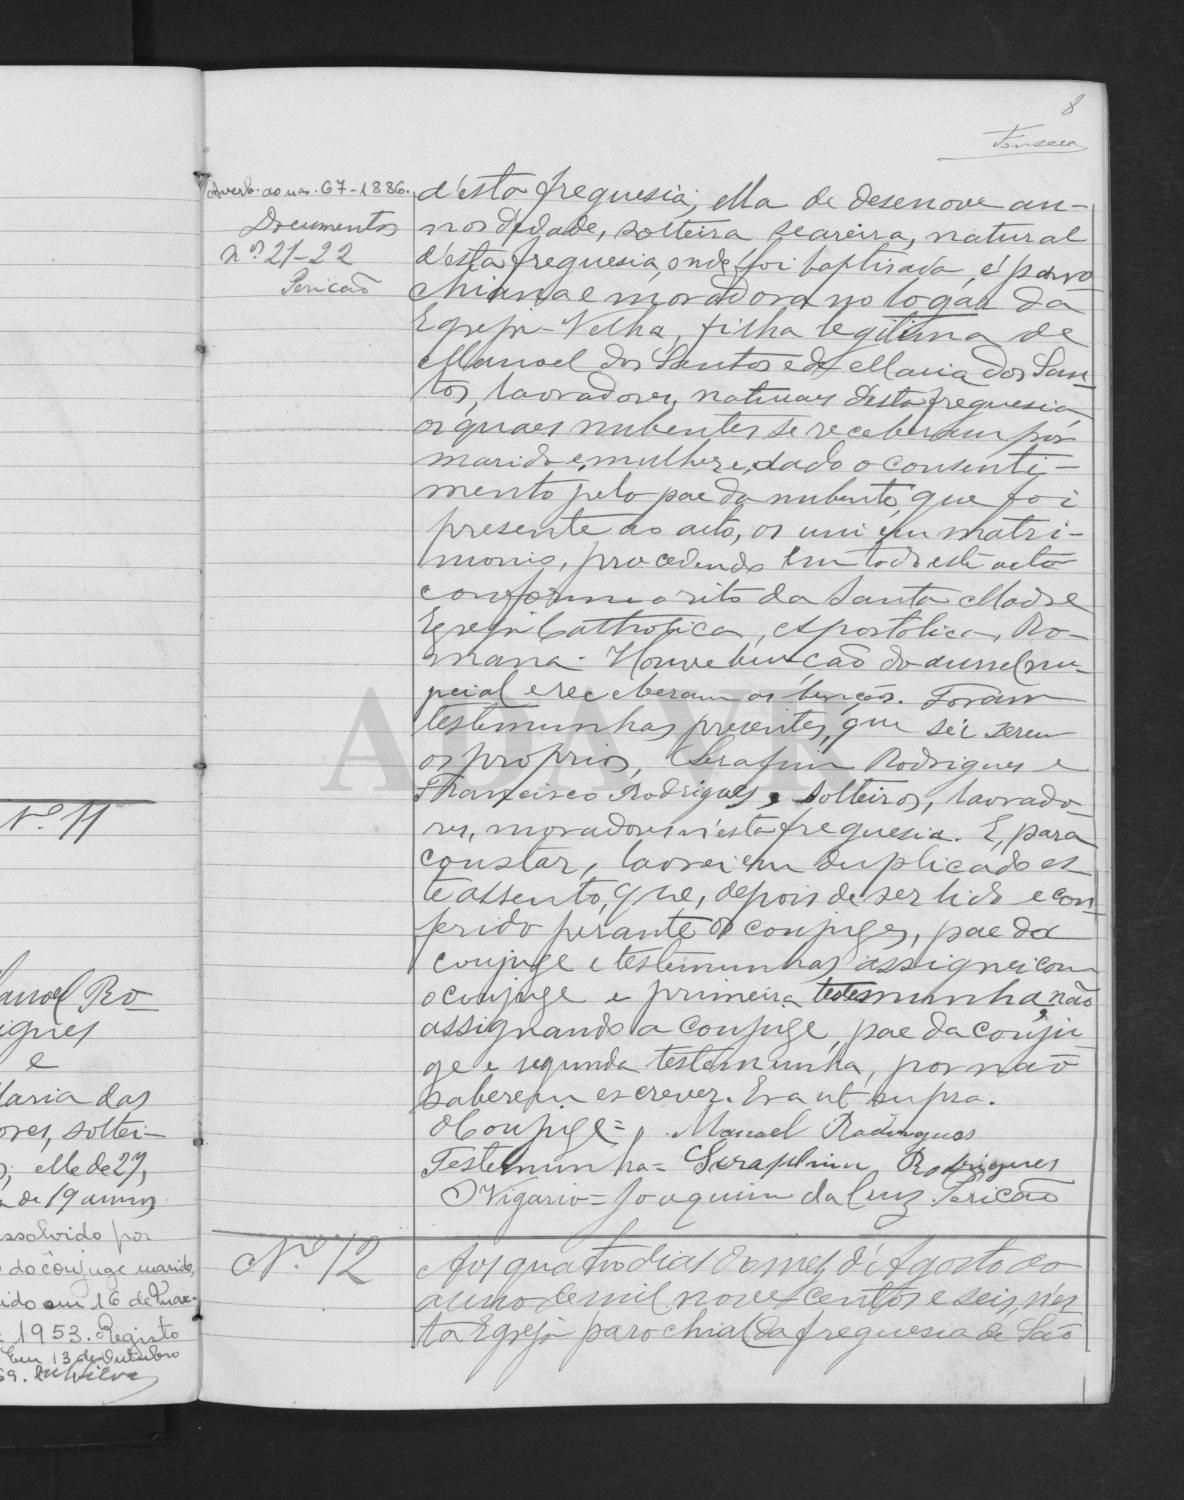 8
Fonseca
Averb. ao nas. 67-1886.
Documentos
nos 21-22
Pericão
d'esta freguesia; ella de desenove an-
nos d'edade, solteira seareira, natural
d'esta freguesia onde foi baptisada, é paro
chiana e moradora no logar da
Egreja-Velha, filha legitima de
Manoel dos Santos e de Maria dos San-
tos, lavradores, naturaes d'esta freguesia
os quaes nubentes se receberam por
marido e mulher e, dado o consenti-
mento pelo pae da nubente, que foi
presente ao acto, os uni em matri-
monio, procedendo em todo este acto
conforme o rito da Santa Madre
Egreja Catholica, Apostolica, Ro-
mana. Houve bencão do annel nu-
pcial e receberam as bençãos. Foram
testemunhas presentes, que sei serem
os proprios, Serafim Rodrigues e
Francisco Rodrigues, solteiros, lavrado-
res, moradores n'esta freguesia. E, para
constar, lavrei em duplicado es
te assento, que, depois de ser lido e con-
ferido perante os conjuges, pae da
conjuge e testemunhas assignei com
o conjuge e primeira testemunha, não
assignando a conjuge, pae da conju-
ge e segunda testemunha, por não
saberem escrever. Era ut supra.
O Conjuge = Manoel Rodrigues
Testemunha = Seraphim Rodrigues
O Vigario = Joaquim da Cruz Pericão
Nº. 12
Aos quatro dias do mez d'Agosto do
anno de mil nove centos e seis, n'es
ta Egreja parochial da freguesia de São
Nº 11
anoel Ro-
igues
e
aria dos
ores, soltei-
s; elle de 27,
a de 19 annos
issolvido por
do cônjuge marido,
ido em 16 de Mar-
1953. Registo
Em 13 de Outubro
69.
ADAVR